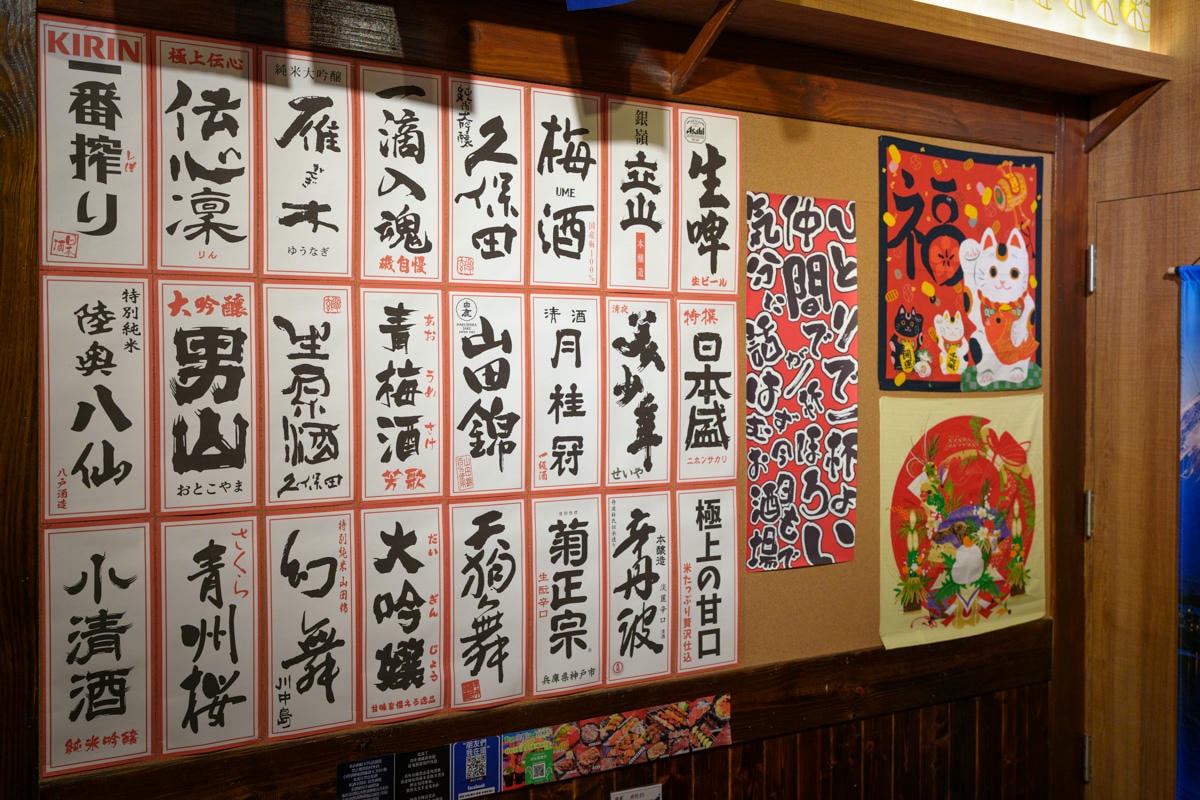 KIRIN
一番搾り
しぼ
極上伝心
伝心凛
りん
純米大吟醸
雁木
ゆうなぎ
一滴入魂
磯自慢
純米大吟醸
久保田
梅酒
UME
国産梅100%
銀嶺
立山
本醸造
Asahi
生啤
生ビール
特別純米
陸奥八仙
八戸酒造
大吟醸
男山
おとこやま
生原酒
久保田
青梅酒
あおうめさけ
芳歌
白鹿
山田錦
清酒
月桂冠
一級酒
清夜
美少年
せいや
特撰
日本盛
ニホンサカリ
小清酒
純米吟醸
さくら
青州桜
特別純米山田錦
幻舞
川中島
大吟醸
だいぎんじょう
甘味を備える逸品
天狗舞
菊正宗
生酛辛口
兵庫県神戸市
辛丹波
本醸造
淡麗辛口
極上の甘口
米たっぷり贅沢仕込
ひとりで一杯よい
仲間で
ほろい
気分い話はむお酒場
福
開運
朋友們
我在這
facebook